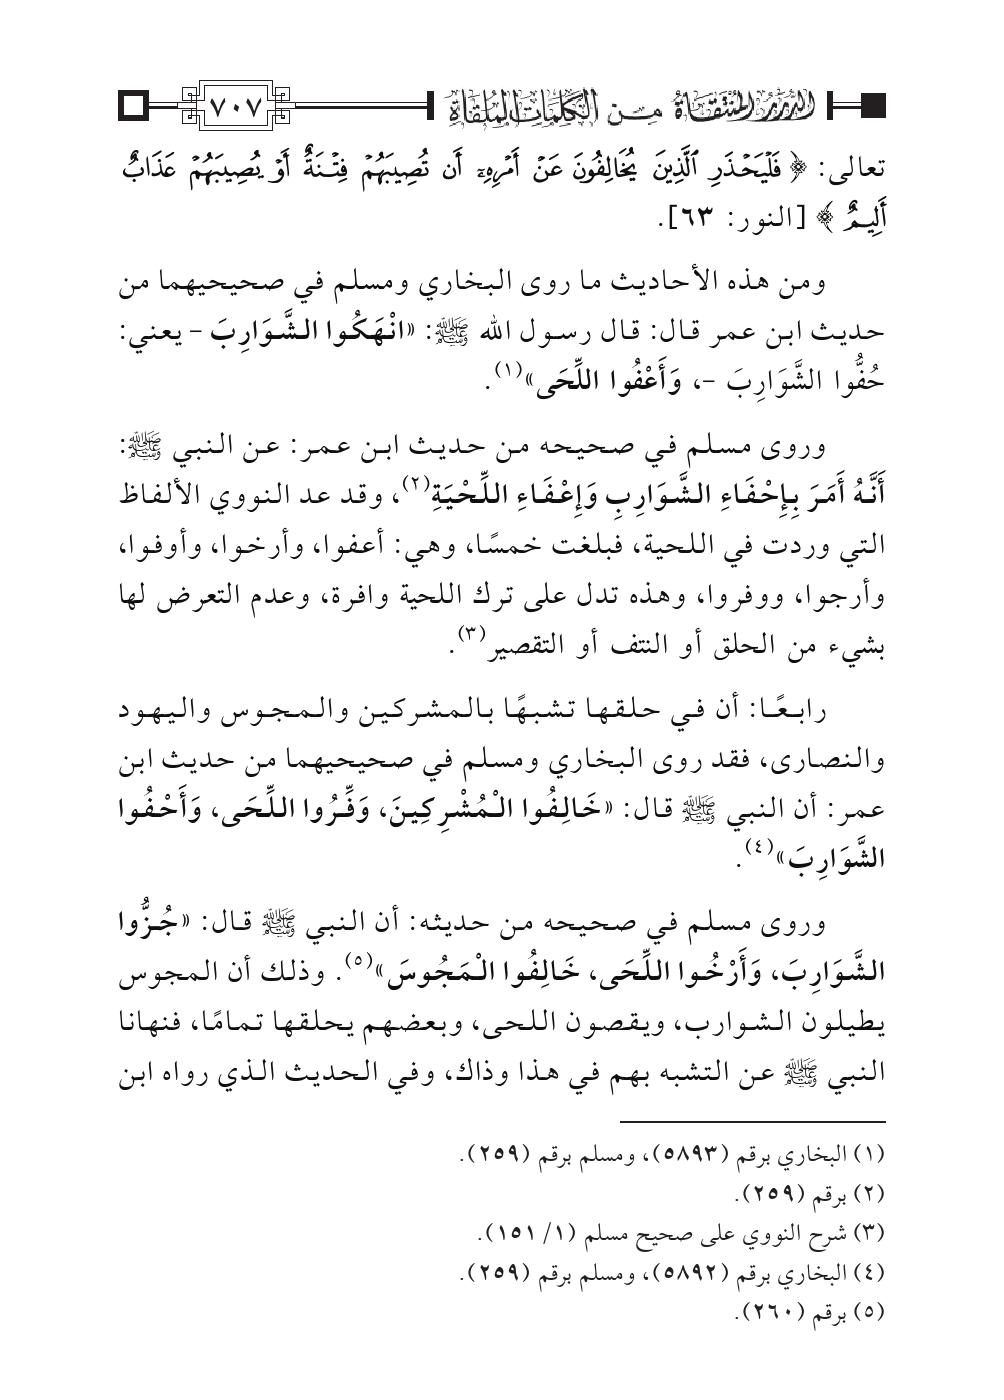 الدرر المنتقاة من الكلمات الملقاة ٧٠٧
تعالى: ﴿ فَلْيَحْذَرِ ٱلَّذِينَ يُخَالِفُونَ عَنْ أَمْرِهِۦٓ أَن تُصِيبَهُمْ فِتْنَةٌ أَوْ يُصِيبَهُمْ عَذَابٌ
أَلِيمٌ ﴾ [النور: ٦٣].
ومن هذه الأحاديث ما روى البخاري ومسلم في صحيحيهما من
حديث ابن عمر قال: قال رسول الله ﷺ: «انْهَكُوا الشَّوَارِبَ – يعني:
حُفُّوا الشَّوَارِبَ –، وَأَعْفُوا اللِّحَى»(١).
وروى مسلم في صحيحه من حديث ابن عمر: عن النبي ﷺ:
أَنَّهُ أَمَرَ بِإِحْفَاءِ الشَّوَارِبِ وَإِعْفَاءِ اللِّحْيَةِ(٢)، وقد عد النووي الألفاظ
التي وردت في اللحية، فبلغت خمسًا، وهي: أعفوا، وأرخوا، وأوفوا،
وأرجوا، ووفروا، وهذه تدل على ترك اللحية وافرة، وعدم التعرض لها
بشيء من الحلق أو النتف أو التقصير(٣).
رابعًا: أن في حلقها تشبهًا بالمشركين والمجوس واليهود
والنصارى، فقد روى البخاري ومسلم في صحيحيهما من حديث ابن
عمر: أن النبي ﷺ قال: «خَالِفُوا الْمُشْرِكِينَ، وَفِّرُوا اللِّحَى، وَأَحْفُوا
الشَّوَارِبَ»(٤).
وروى مسلم في صحيحه من حديثه: أن النبي ﷺ قال: «جُزُّوا
الشَّوَارِبَ، وَأَرْخُوا اللِّحَى، خَالِفُوا الْمَجُوسَ»(٥). وذلك أن المجوس
يطيلون الشوارب، ويقصون اللحى، وبعضهم يحلقها تمامًا، فنهانا
النبي ﷺ عن التشبه بهم في هذا وذاك، وفي الحديث الذي رواه ابن
(١) البخاري برقم (٥٨٩٣)، ومسلم برقم (٢٥٩).
(٢) برقم (٢٥٩).
(٣) شرح النووي على صحيح مسلم (١/ ١٥١).
(٤) البخاري برقم (٥٨٩٢)، ومسلم برقم (٢٥٩).
(٥) برقم (٢٦٠).